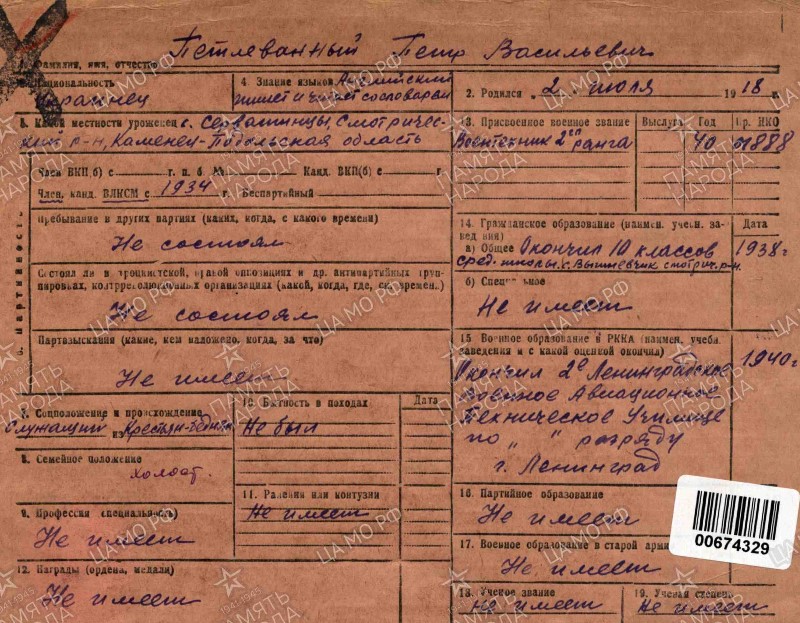 Петлеванный Петр Васильевич
1. Фамилия, имя, отчество
3. Национальность
Украинец
4. Знание языков Английский
пишет и читает со словарем
2. Родился 2 июля 1918 г.
5. Какой местности уроженец с. Сервatinцы, Смотричес-
кий р-н, Каменец-Подольская область
13. Присвоенное военное звание Выслуга Год Пр. НКО
Воентехник 2го ранга 40 01888
Член ВКП(б) с г. п. б. № Канд. ВКП(б) с г.
Член, канд. ВЛКСМ с 1934 г. Беспартийный
6. Партийность
Пребывание в других партиях (каких, когда, с какого времени)
Не состоял
Состоял ли в троцкистской, правой оппозициях и др. антипартийных груп-
пировках, контрреволюционных организациях (какой, когда, где, ск. времени)
Не состоял
Партвзыскания (какие, кем наложено, когда, за что)
Не имеет
14. Гражданское образование (наимен. учебн. заве-
дения) Дата
а) Общее Окончил 10 классов 1938 г
сред. школы с. смотрич. р-н.
б) Специальное
Не имеет
15. Военное образование в РККА (наимен. учебн.
заведения и с какой оценкой окончил) 1940 г
Окончил 2е Ленинградское
Военное Авиационное
Техническое Училище
по " " разряду
г. Ленинград
7. Соцположение и происхождение
Служащий из Крестьян-бедняк.
8. Семейное положение
холост.
9. Профессия (специальность)
Не имеет
10. Бытность в походах Дата
Не был
11. Ранения или контузии
Не имеет
12. Награды (ордена, медали)
Не имеет
16. Партийное образование
Не имеет
17. Военное образование в старой армии
Не имеет
18. Ученое звание
Не имеет
19. Ученая степень
Не имеет
00674329
ЦА МО РФ
ПАМЯТЬ
НАРОДА
1941-1945